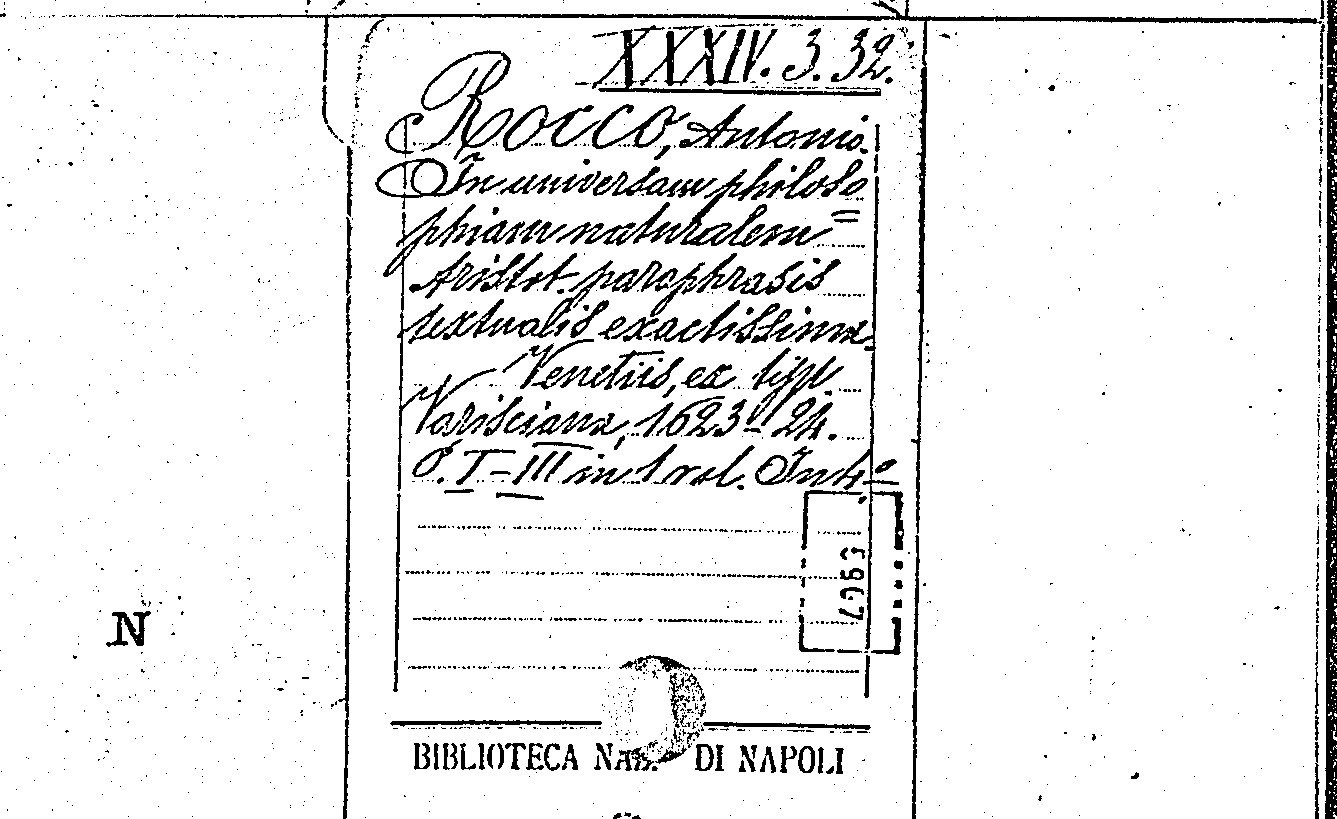 XXXIV. 3. 32.
ROCCO, Antonio.
In universam philoso
phiam naturalem
Aristot. paraphrasis
textualis exactissima.
Venetiis, ex typ.
Varisciana, 1623-24.
P. I-III in 1 vol. In 4.º
N
BIBLIOTECA NAZ. DI NAPOLI